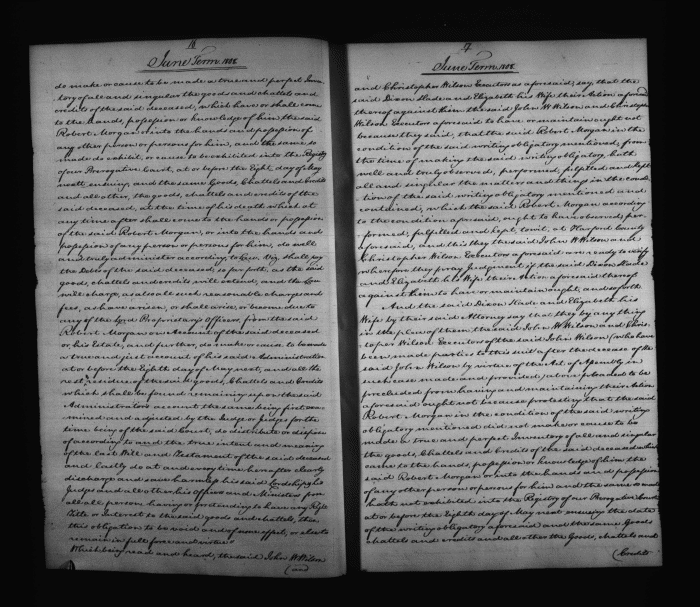 16
June Term 1808
do make or cause to be made a true and perfect Inven
tory of all and singular the goods and chattels and
credits of the said deceased, which have or shall come
to the hands, possession or knowledge of him the said
Robert Morgan or into the hands and possession of
any other person or persons for him, and the same so
made do exhibit, or cause to be exhibited into the Registry
of our Prerogative Court, at or before the Eighth day of May
next ensuing and the same Goods, Chattels and Credits
and all other, the goods, chattels and credits of the
said deceased, at the time of his death which at
any time after shall come to the hands or possession
of the said Robert Morgan, or into the hands and
possession of any person or persons for him, do well
and truly administer according to Law, Viz, shall pay
the Debts of the said deceased, so far forth, as the said
goods, chattels and credits will extend, and the Law
will charge, as also all such reasonable charges and
fees, as have arisen, or shall arise, or become due to
any of the Lord Proprietary's Officers, from the said
Robert Morgan on Account of the said deceased
or his Estate, and further, do make or cause to be made
a true and just account of his said Administration
at or before the Eighth day of May next, and all the
rest & residue of the said goods, Chattels and Credits
which shall be found remaining upon the said
Administrators account the same being first exa
mined and adjusted by the Judge or Judges for the
time being of the said Court, do distribute or dispose
of according to and the true intent and meaning
of the Last Will and Testament of the said deceased
and lastly do at and every time hereafter clearly
discharge and save harmless his said Lordship, his
Judges and all other his Officers and Ministers from
all person having or pretending to have any Right
Title or Interest to the said goods and chattels, then
this obligation to be void and of none effect, or else to
remain in full force and virtue
Which being read and heard, the said John W Wilson
(and
17
June Term 1808
and Christopher Wilson Executors as aforesaid, say, that the
said Dixon Slade and Elizabeth his Wife their Action aforesaid
thereof against them the said John W Wilson and Christopher
Wilson Executors aforesaid to have or maintain ought not
because they said, that the said Robert Morgan in the
condition of the said writing obligatory mentioned, from
the time of making the said writing obligatory, hath
well and truly observed, performed, fulfilled and kept
all and singular the matters and things in the condi
tion of the said writing obligatory mentioned and
contained, which the said Robert Morgan according
to the condition aforesaid, ought to have observed per-
formed, fulfilled and kept, towit, at Harford County
aforesaid, and this they the said John W Wilson and
Christopher Wilson Executors aforesaid are ready to verify
wherefore they pray Judgment if the said Dixon Slade
and Elizabeth his Wife their Action aforesaid thereof
against them to have or maintain ought, and so forth
And the said Dixon Slade and Elizabeth his
Wife by their said Attorney say that they by any thing
in the plea of them the said John W Wilson and Chris
topher Wilson Executors of the said John Wilson (who have
been made parties to this suit after the decease of the
said John Wilson by virtue of the Act of Assembly in
such case made and provided) above pleaded to be
precluded from having and maintaining their Action
aforesaid ought not because protesting that the said
Robert Morgan in the condition of the said writing
obligatory mentioned did not make or cause to be
made a true and perfect Inventory of all and singular
the goods, Chattels and Credits of the said deceased which
came to the hands, possession or knowledge of him the
said Robert Morgan or into the hands and possession
of any other person or persons for him and the same so made
hath not exhibited into the Registry of our Prerogative Court
at or before the Eighth day of May next ensuing the date
of the writing obligatory aforesaid and the same Goods
chattels and credits and all other the Goods, chattels and
(Credits